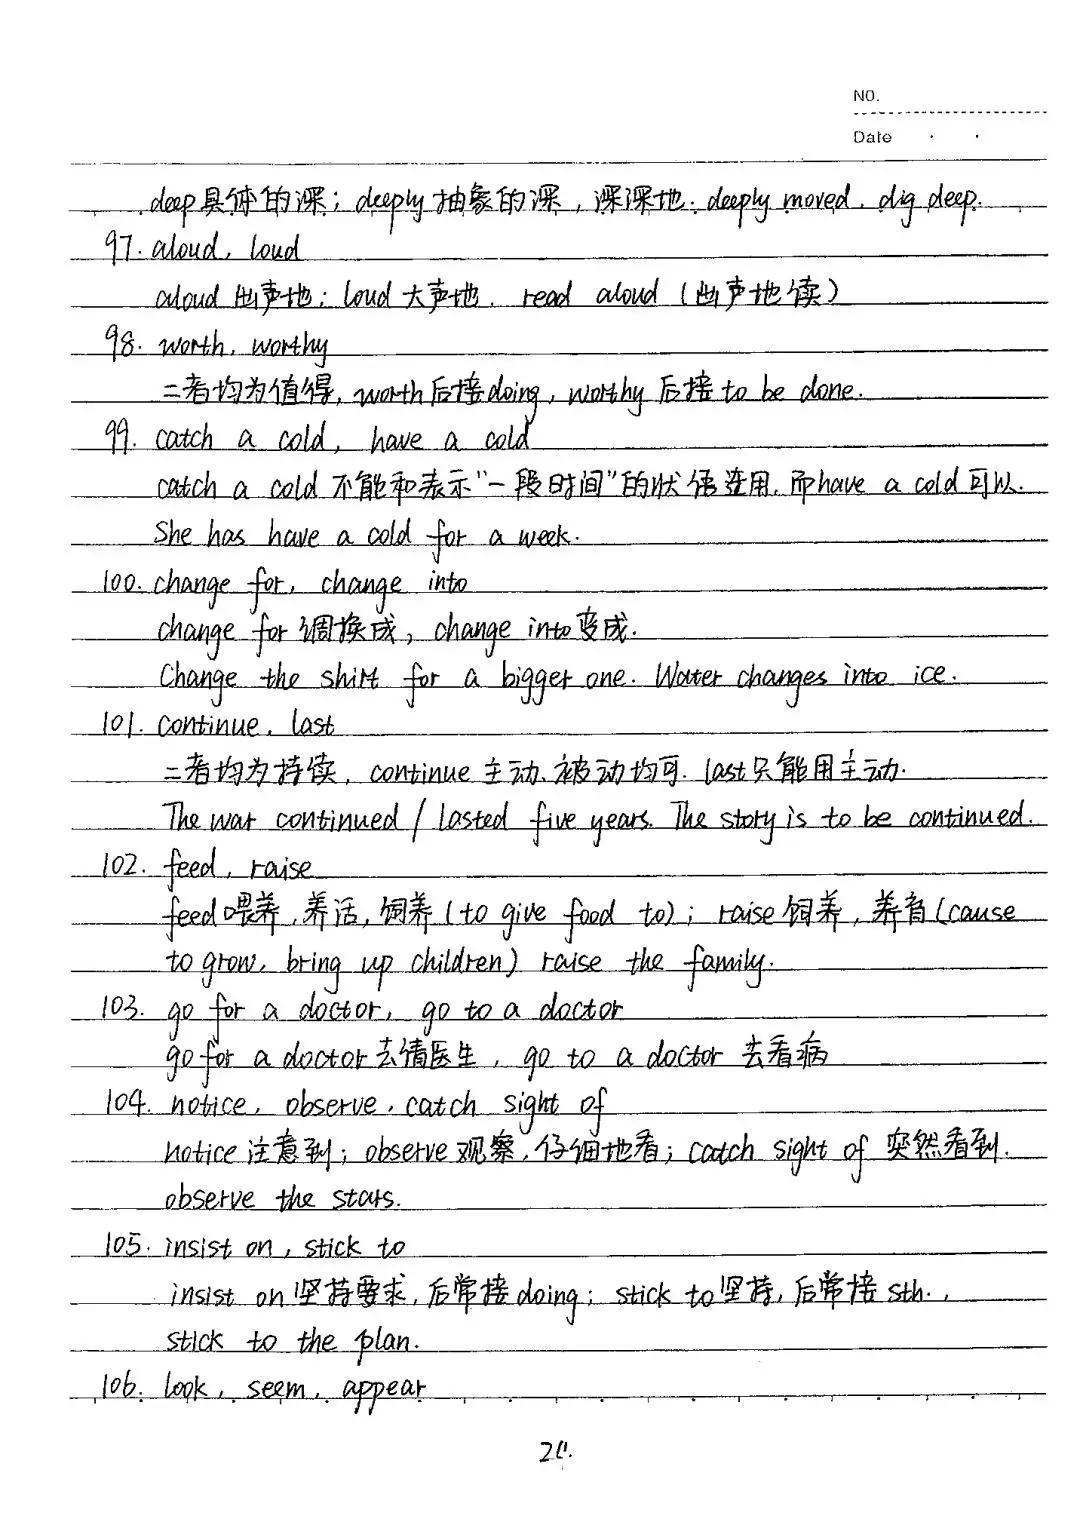 NO.
Date
deep具体的深；deeply抽象的深，深深地．deeply moved．dig deep.
97. aloud, loud
aloud 出声地；loud 大声地．read aloud（出声地读）
98. worth, worthy
二者均为值得, worth后接doing, worthy后接to be done.
99. catch a cold, have a cold
catch a cold 不能和表示“一段时间”的状语连用, 而have a cold可以.
She has have a cold for a week.
100. change for, change into
change for 调换成, change into变成.
Change the shirt for a bigger one. Water changes into ice.
101. continue, last
二者均为持续, continue 主动、被动均可. last只能用主动.
The war continued / lasted five years. The story is to be continued.
102. feed, raise
feed喂养, 养活, 饲养 (to give food to); raise 饲养, 养育 (cause
to grow, bring up children) raise the family.
103. go for a doctor, go to a doctor
go for a doctor 去请医生, go to a doctor 去看病
104. notice, observe, catch sight of
notice 注意到; observe 观察, 仔细地看; catch sight of 突然看到.
observe the stars.
105. insist on, stick to
insist on 坚持要求, 后常接doing; stick to 坚持, 后常接 sth.,
stick to the plan.
106. look, seem, appear